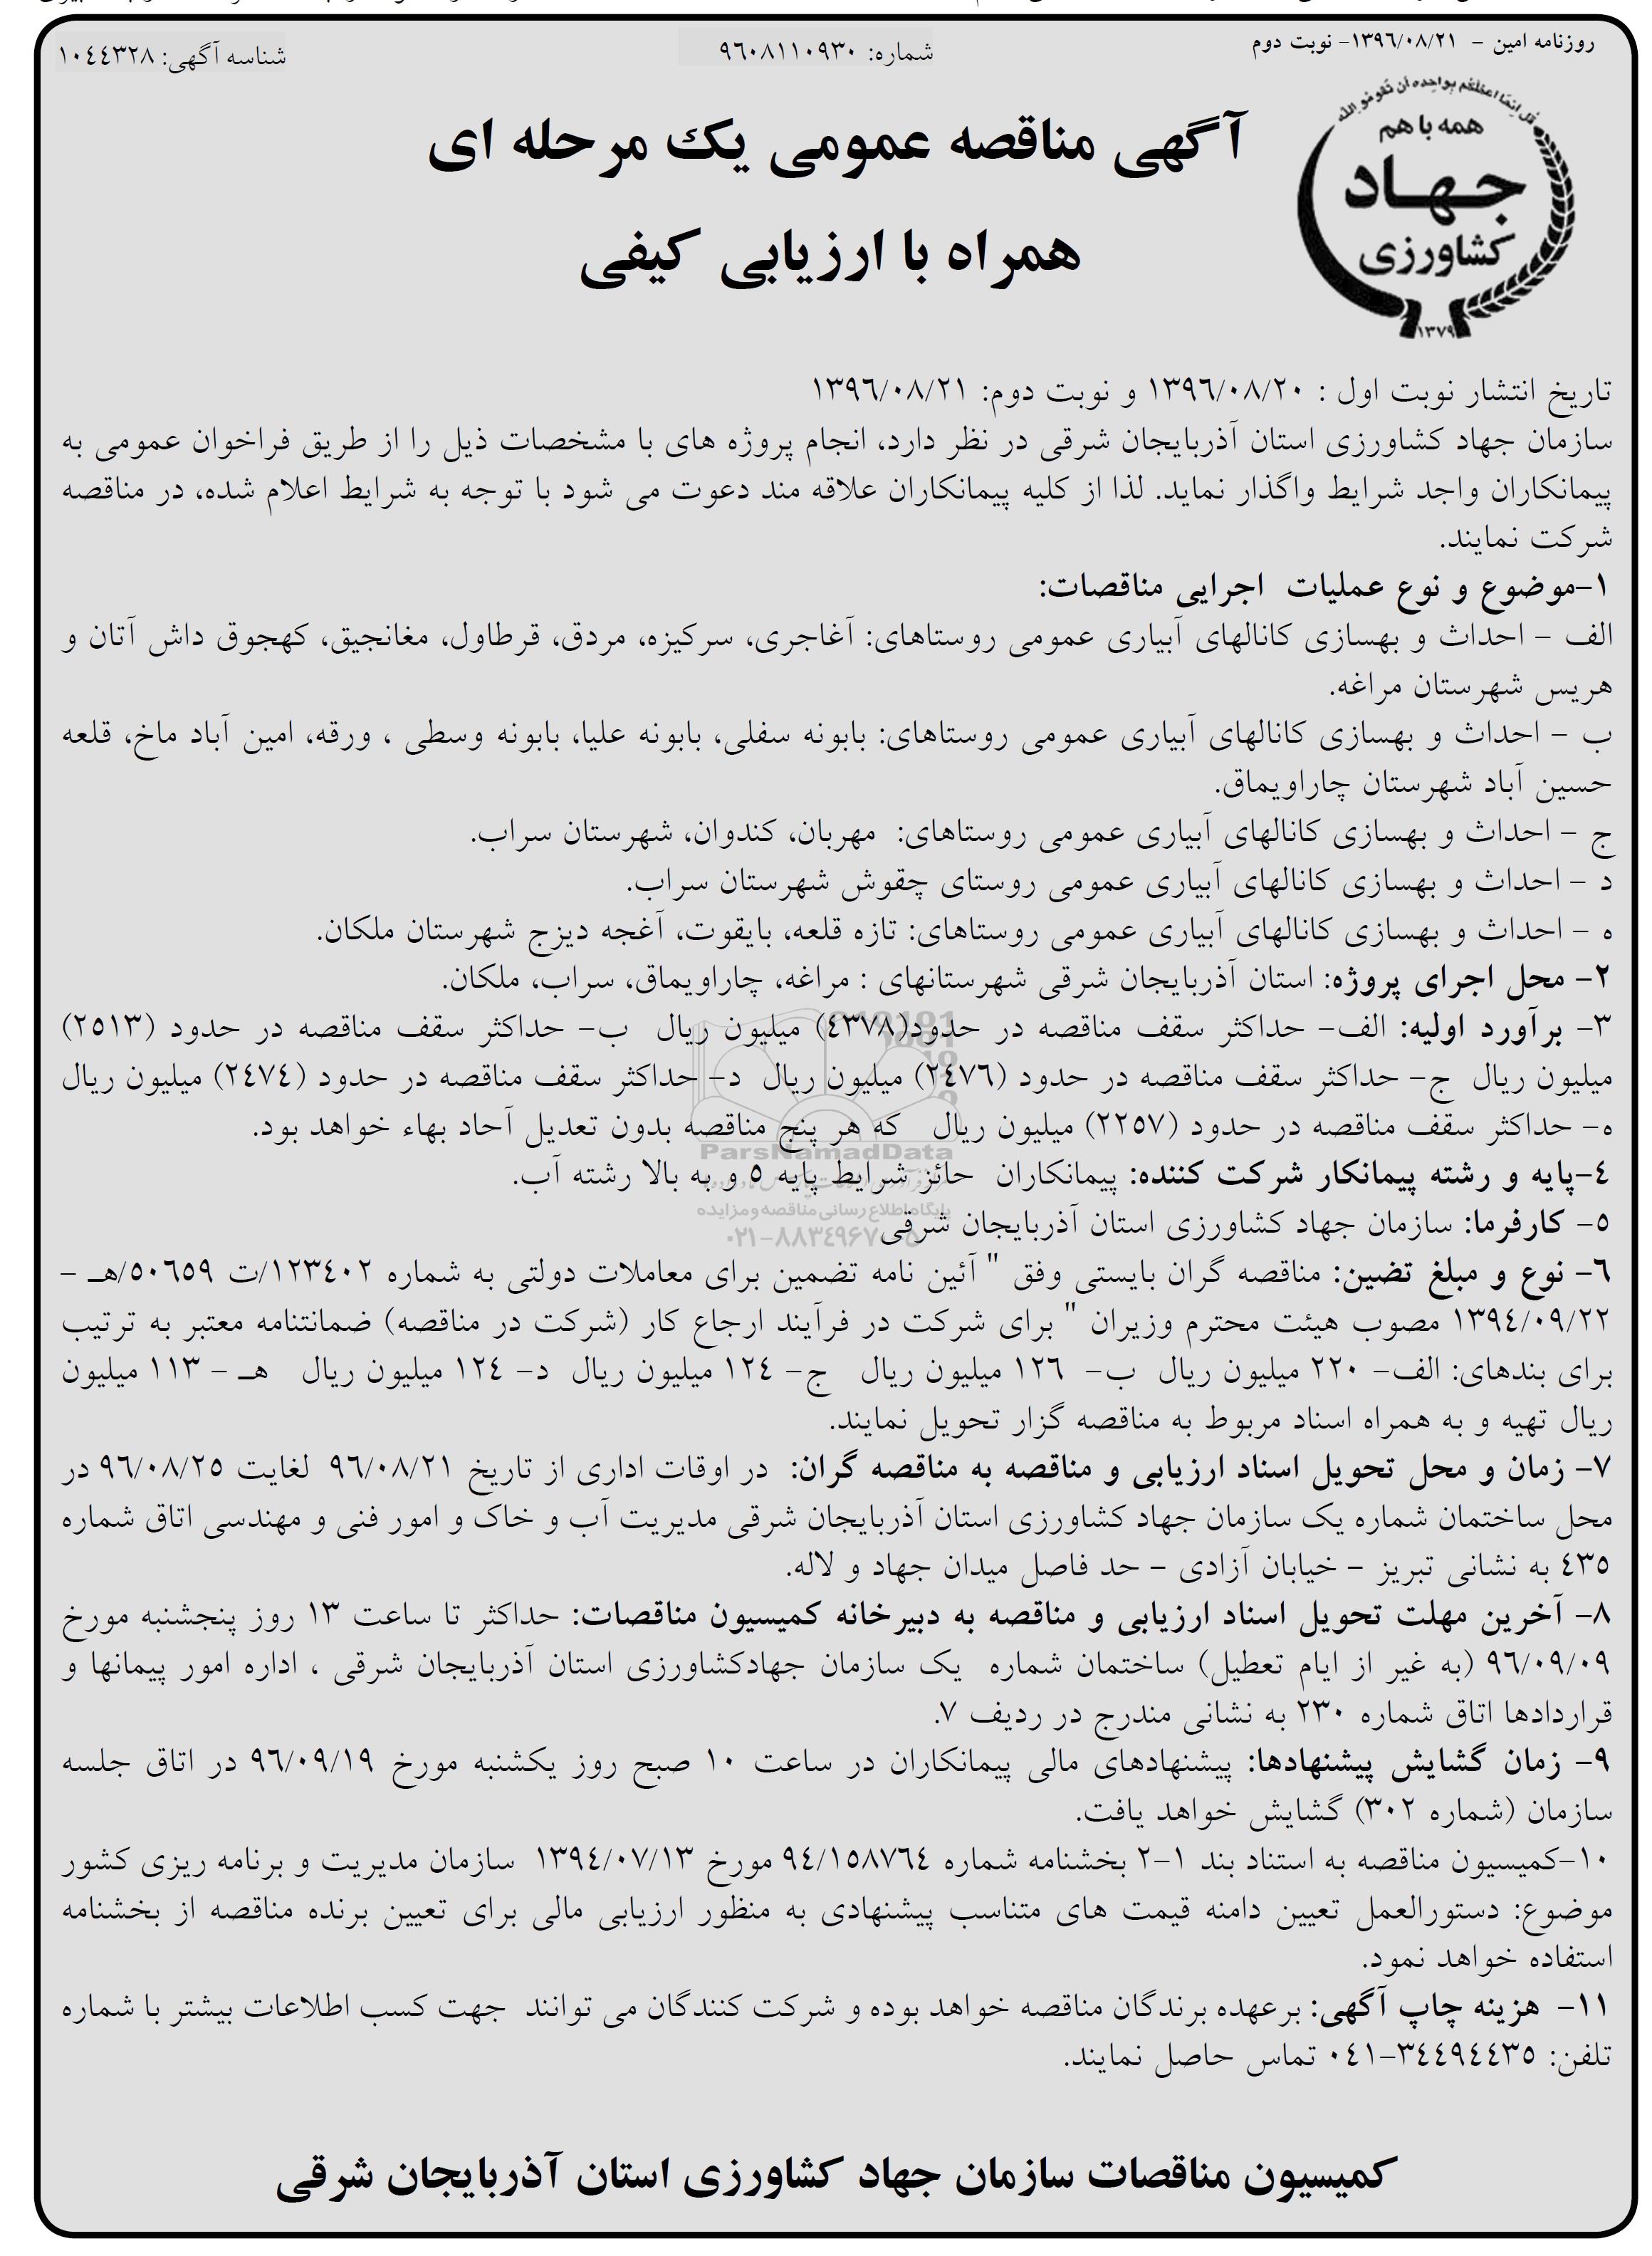 روزنامه امین - ۱۳۹۶/۰۸/۲۱- نوبت دوم
شماره: ۹۶۰۸۱۱۰۹۳۰
شناسه آگهی: ۱۰۴۴۳۲۸
همه با هم
جهاد
کشاورزی
۱۳۷۹
آگهی مناقصه عمومی یک مرحله ای
همراه با ارزیابی کیفی
تاریخ انتشار نوبت اول : ۱۳۹۶/۰۸/۲۰ و نوبت دوم: ۱۳۹۶/۰۸/۲۱
سازمان جهاد کشاورزی استان آذربایجان شرقی در نظر دارد، انجام پروژه های با مشخصات ذیل را از طریق فراخوان عمومی به
پیمانکاران واجد شرایط واگذار نماید. لذا از کلیه پیمانکاران علاقه مند دعوت می شود با توجه به شرایط اعلام شده، در مناقصه
شرکت نمایند.
۱-موضوع و نوع عملیات اجرایی مناقصات:
الف - احداث و بهسازی کانالهای آبیاری عمومی روستاهای: آغاجری، سرکیزه، مردق، قرطاول، مغانجیق، کهجوق داش آتان و
هریس شهرستان مراغه.
ب - احداث و بهسازی کانالهای آبیاری عمومی روستاهای: بابونه سفلی، بابونه علیا، بابونه وسطی ، ورقه، امین آباد ماخ، قلعه
حسین آباد شهرستان چاراویماق.
ج - احداث و بهسازی کانالهای آبیاری عمومی روستاهای: مهربان، کندوان، شهرستان سراب.
د - احداث و بهسازی کانالهای آبیاری عمومی روستای چقوش شهرستان سراب.
ه - احداث و بهسازی کانالهای آبیاری عمومی روستاهای: تازه قلعه، بایقوت، آغجه دیزج شهرستان ملکان.
۲- محل اجرای پروژه: استان آذربایجان شرقی شهرستانهای : مراغه، چاراویماق، سراب، ملکان.
۳- برآورد اولیه: الف- حداکثر سقف مناقصه در حدود(۴۳۷۸) میلیون ریال ب- حداکثر سقف مناقصه در حدود (۲۵۱۳)
میلیون ریال ج- حداکثر سقف مناقصه در حدود (۲۴۷۶) میلیون ریال د- حداکثر سقف مناقصه در حدود (۲۴۷۴) میلیون ریال
ه- حداکثر سقف مناقصه در حدود (۲۲۵۷) میلیون ریال که هر پنج مناقصه بدون تعدیل آحاد بهاء خواهد بود.
ParsNamadData
۴-پایه و رشته پیمانکار شرکت کننده: پیمانکاران حائز شرایط پایه ۵ و به بالا رشته آب.
پایگاه اطلاع رسانی مناقصه و مزایده
۵- کارفرما: سازمان جهاد کشاورزی استان آذربایجان شرقی
۰۲۱-۸۸۳۴۹۶۷۰-۵
۶- نوع و مبلغ تضین: مناقصه گران بایستی وفق " آئین نامه تضمین برای معاملات دولتی به شماره ۱۲۳۴۰۲/ت ۵۰۶۵۹/هـ -
۱۳۹۴/۰۹/۲۲ مصوب هیئت محترم وزیران " برای شرکت در فرآیند ارجاع کار (شرکت در مناقصه) ضمانتنامه معتبر به ترتیب
برای بندهای: الف- ۲۲۰ میلیون ریال ب- ۱۲۶ میلیون ریال ج- ۱۲۴ میلیون ریال د- ۱۲۴ میلیون ریال هـ - ۱۱۳ میلیون
ریال تهیه و به همراه اسناد مربوط به مناقصه گزار تحویل نمایند.
۷- زمان و محل تحویل اسناد ارزیابی و مناقصه به مناقصه گران: در اوقات اداری از تاریخ ۹۶/۰۸/۲۱ لغایت ۹۶/۰۸/۲۵ در
محل ساختمان شماره یک سازمان جهاد کشاورزی استان آذربایجان شرقی مدیریت آب و خاک و امور فنی و مهندسی اتاق شماره
۴۳۵ به نشانی تبریز - خیابان آزادی - حد فاصل میدان جهاد و لاله.
۸- آخرین مهلت تحویل اسناد ارزیابی و مناقصه به دبیرخانه کمیسیون مناقصات: حداکثر تا ساعت ۱۳ روز پنجشنبه مورخ
۹۶/۰۹/۰۹ (به غیر از ایام تعطیل) ساختمان شماره یک سازمان جهادکشاورزی استان آذربایجان شرقی ، اداره امور پیمانها و
قراردادها اتاق شماره ۲۳۰ به نشانی مندرج در ردیف ۷.
۹- زمان گشایش پیشنهادها: پیشنهادهای مالی پیمانکاران در ساعت ۱۰ صبح روز یکشنبه مورخ ۹۶/۰۹/۱۹ در اتاق جلسه
سازمان (شماره ۳۰۲) گشایش خواهد یافت.
۱۰-کمیسیون مناقصه به استناد بند ۱-۲ بخشنامه شماره ۹۴/۱۵۸۷۶۴ مورخ ۱۳۹۴/۰۷/۱۳ سازمان مدیریت و برنامه ریزی کشور
موضوع: دستورالعمل تعیین دامنه قیمت های متناسب پیشنهادی به منظور ارزیابی مالی برای تعیین برنده مناقصه از بخشنامه
استفاده خواهد نمود.
۱۱- هزینه چاپ آگهی: برعهده برندگان مناقصه خواهد بوده و شرکت کنندگان می توانند جهت کسب اطلاعات بیشتر با شماره
تلفن: ۳۴۴۹۴۴۳۵-۰۴۱ تماس حاصل نمایند.
کمیسیون مناقصات سازمان جهاد کشاورزی استان آذربایجان شرقی